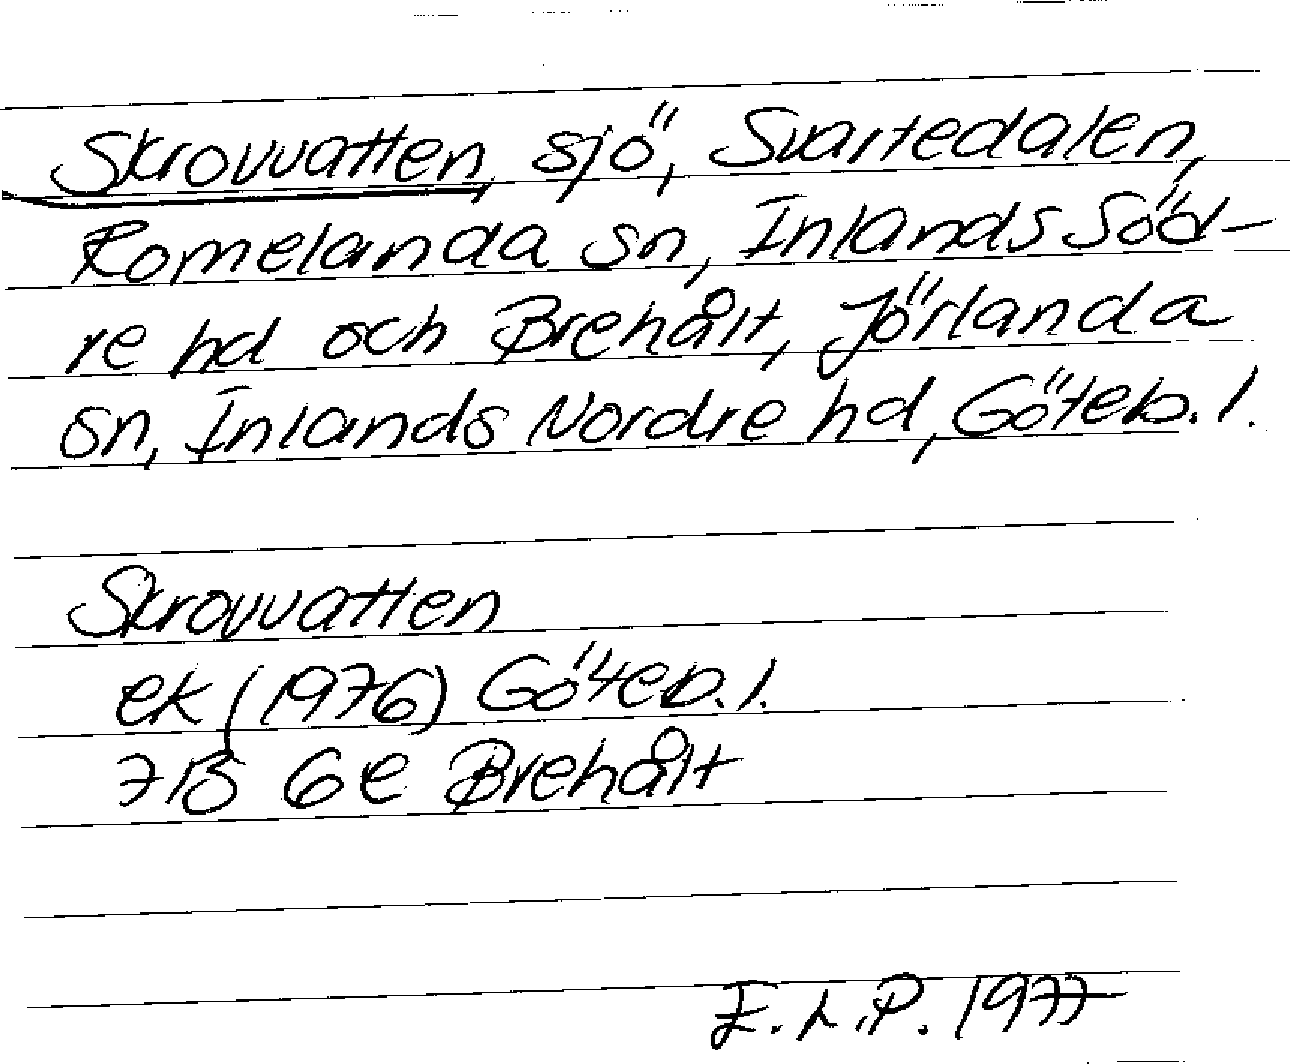 Skrovvatten, sjö, Svartedalen,
Romelanda sn, Inlands Söd-
re hd och Brehålt, Jörlanda
sn, Inlands Nordre hd, Göteb. l.
Skrovvatten
ek (1976) Göteb. l.
7B 6e Brehålt
E.L.P. 1977